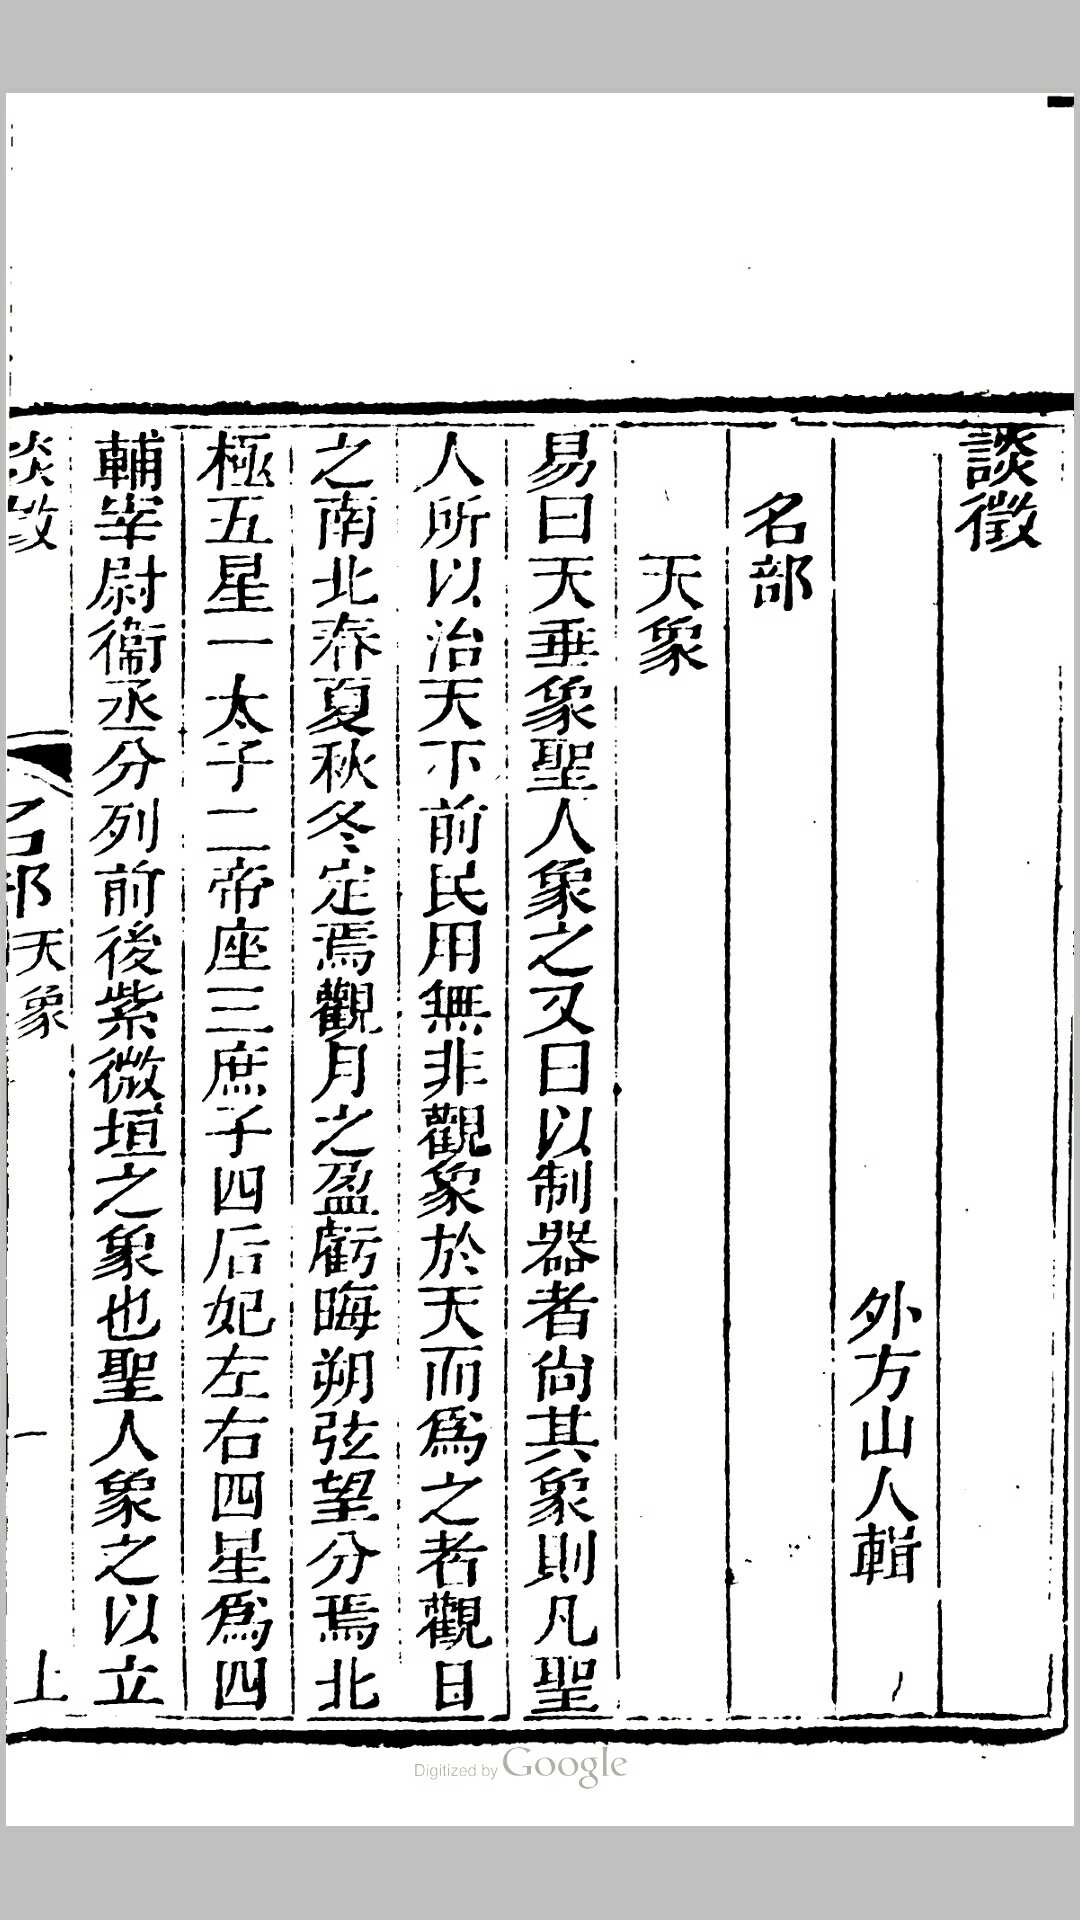 談徵
外方山人輯
名部
天象
易曰天垂象聖人象之又曰以制器者尙其象則凡聖
人所以治天下前民用無非觀象於天而爲之者觀日
之南北春夏秋冬定焉觀月之盈虧晦朔弦望分焉北
極五星一太子二帝座三庶子四后妃左右四星爲四
輔宰尉衞丞分列前後紫微垣之象也聖人象之以立
談徵
名部
天象
一
上
Digitized by Google